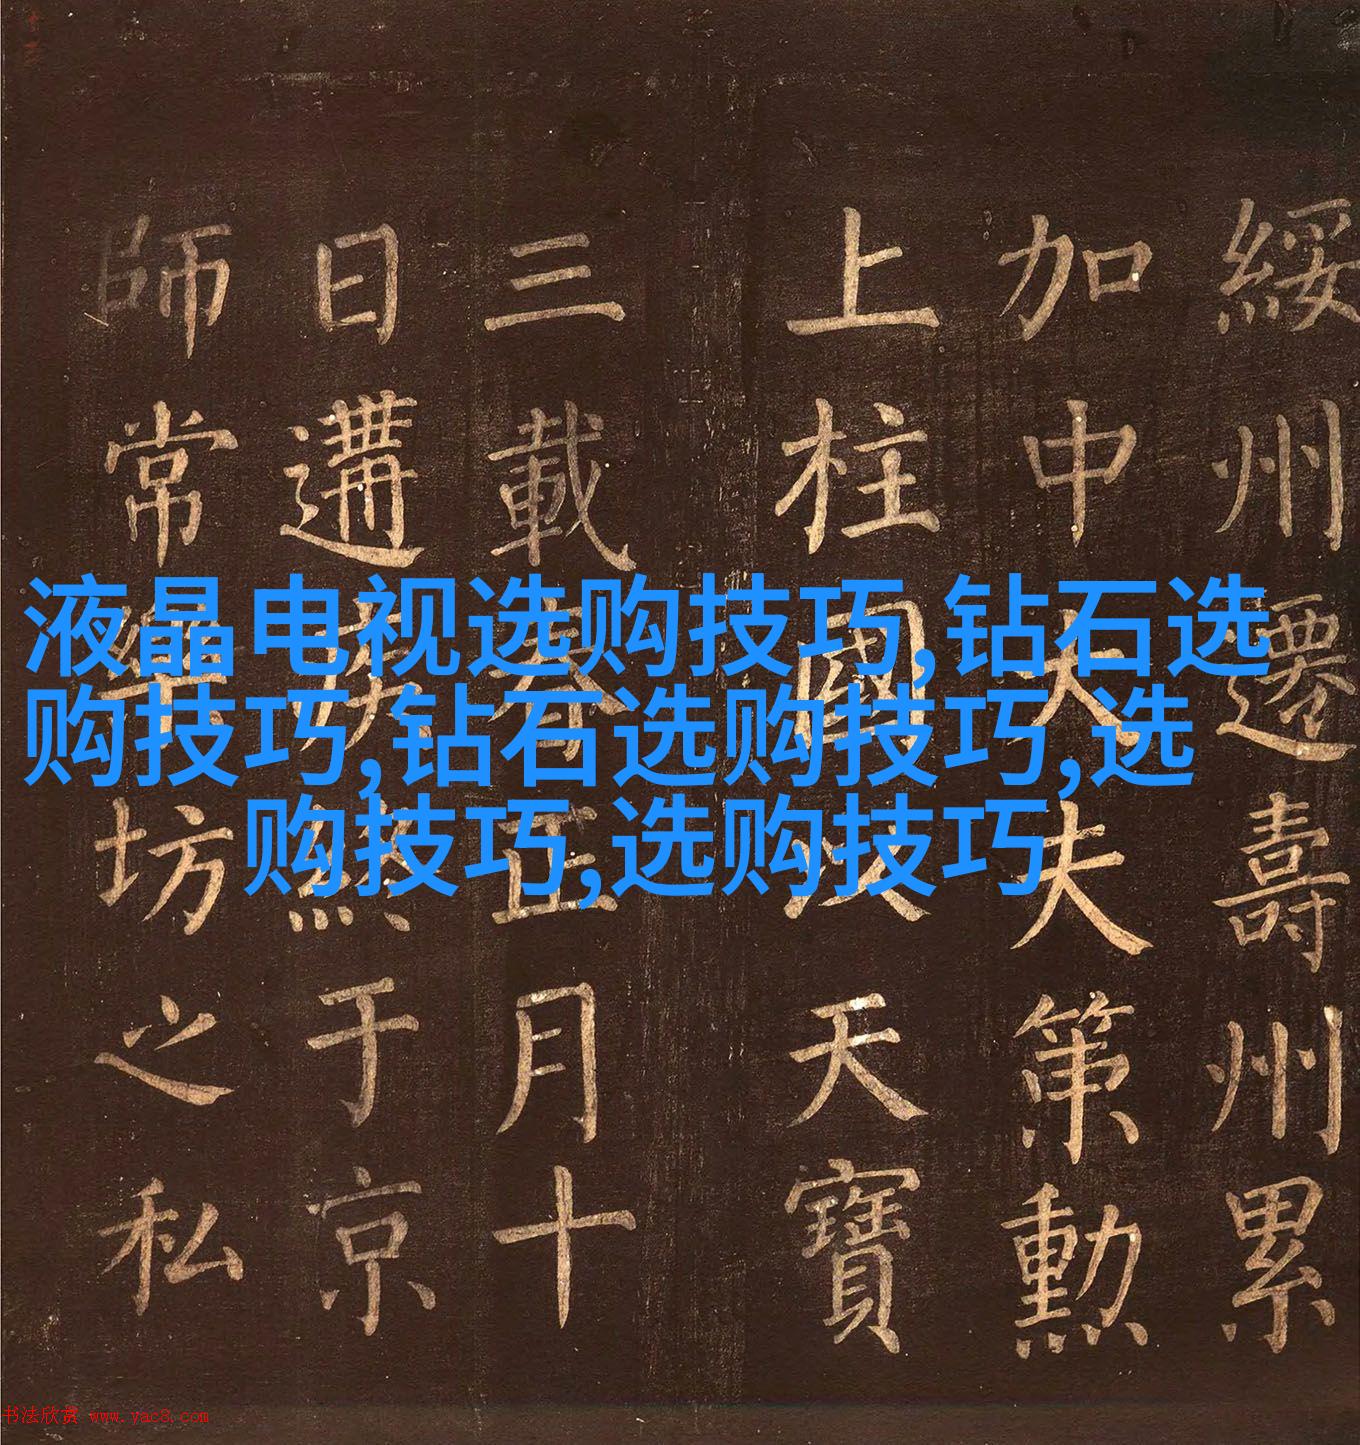 液晶电视选购技巧,钻石选
购技巧,钻石选购技巧,选
购技巧,选购技巧
綏州遷壽州累
加中大夫策勳
上柱國以天寶
三載春正月十
日遘疾終于京
師常樂坊之私
书法欣赏 www.yac8.com